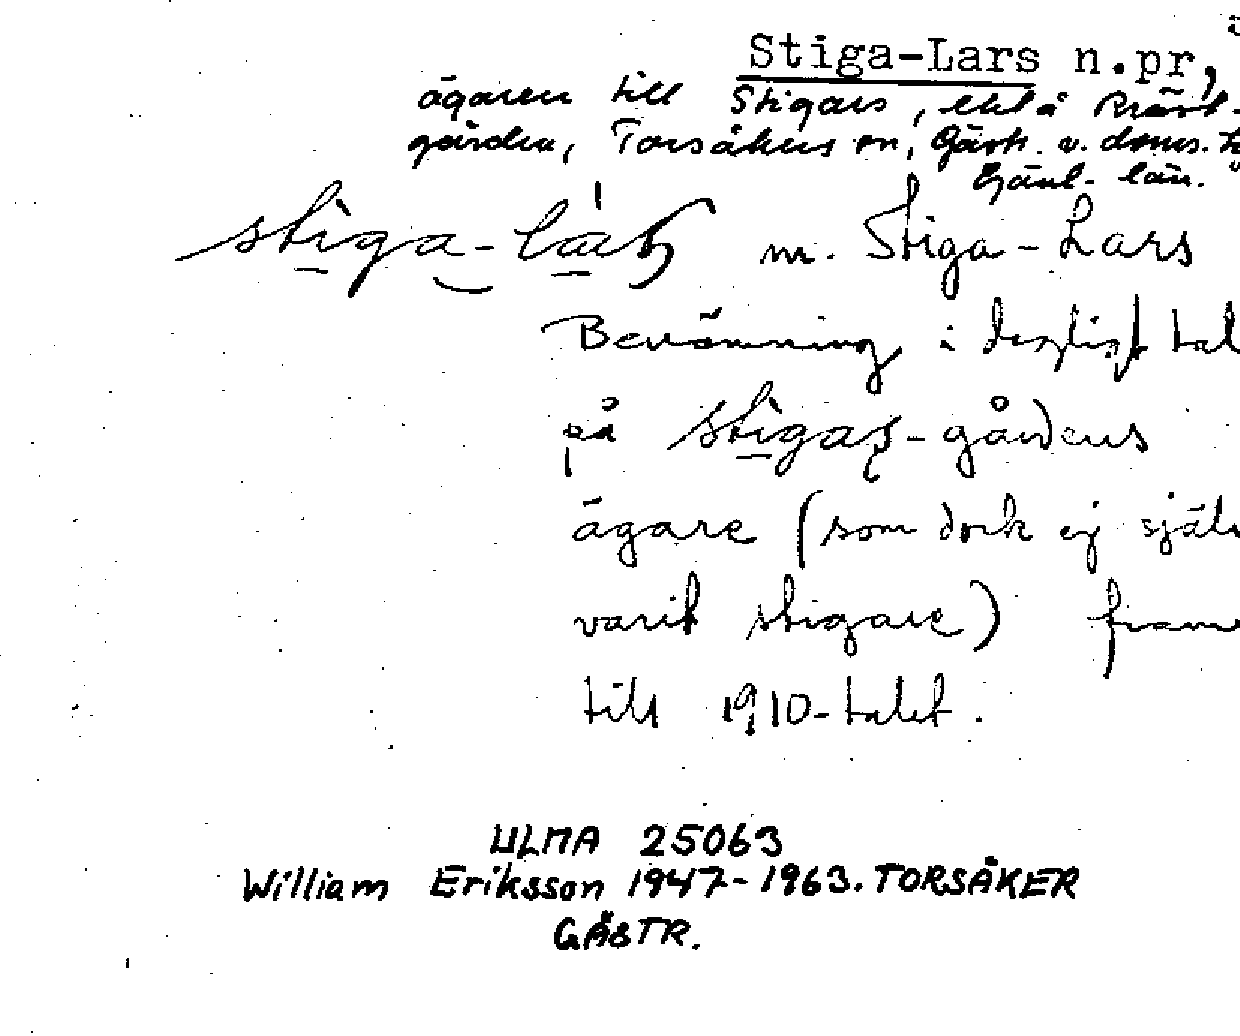 Stiga-Lars n.pr,
ägaren till Stigars, å
Torsåkers sn, Gästr. v. doms.
Gävl. län.
stiga-la m. Stiga-Lars
Benämning i dagligt tal
på stigas-gårdens
ägare (som dock ej själv
varit stigare) fram
till 1910-talet.
ULMA 25063
William Eriksson 1947-1963. TORSÅKER
GÄSTR.